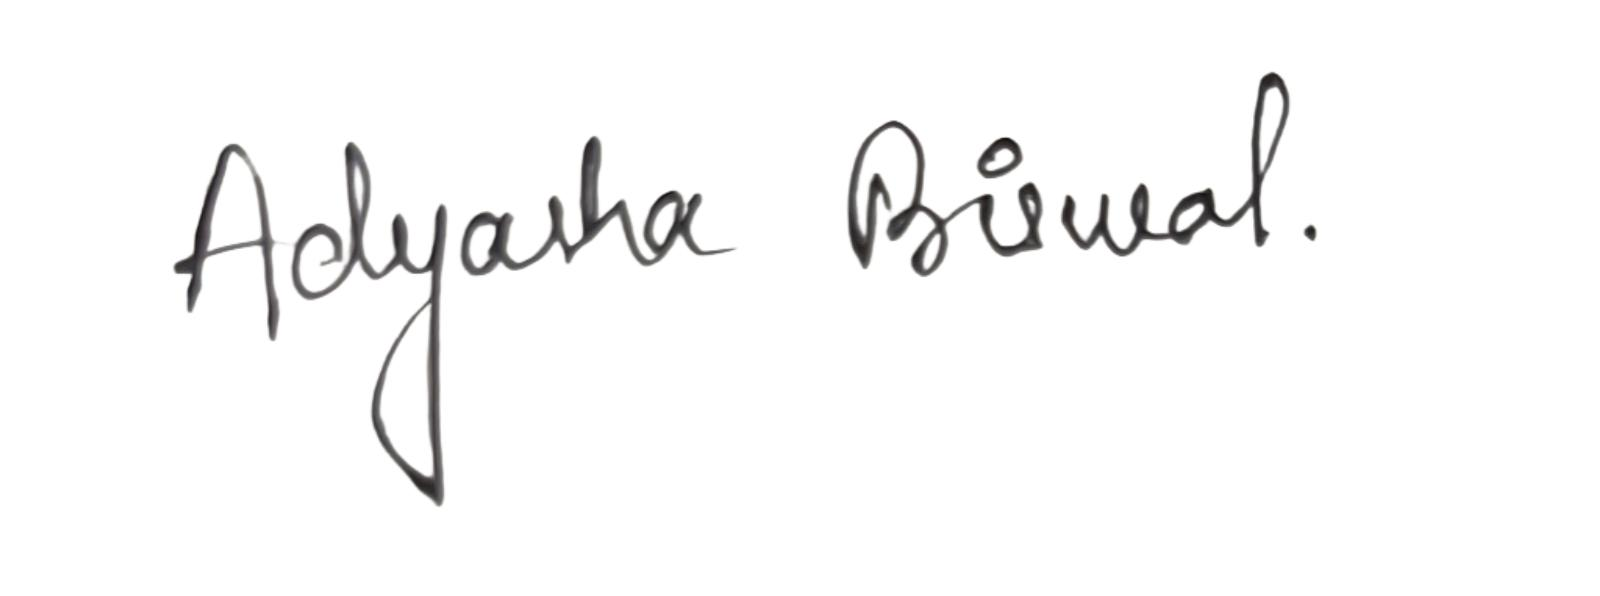 Adyasha Biswal.